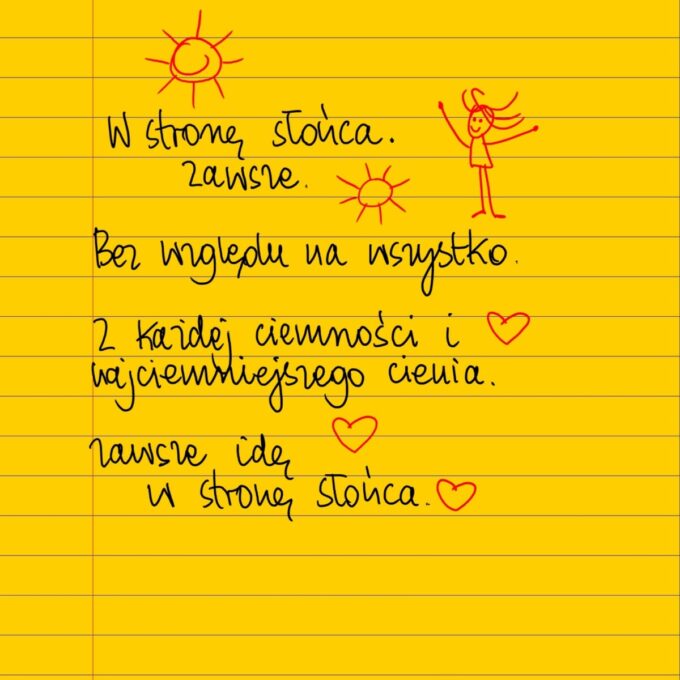 W stronę słońca.
Zawsze.
Bez względu na wszystko.
Z każdej ciemności i
najciemniejszego cienia.
zawsze idę
w stronę słońca.